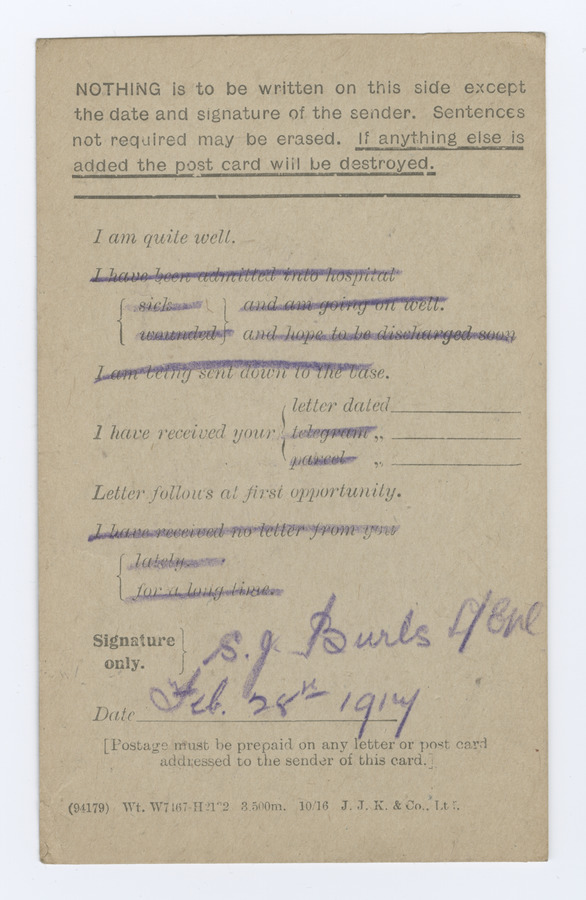 NOTHING is to be written on this side except
the date and signature of the sender. Sentences
not required may be erased. If anything else is
added the post card will be destroyed.
I am quite well.
I have been admitted into hospital
sick and am going on well.
wounded and hope to be discharged soon
I am being sent down to the base.
letter dated
I have received your telegram „
parcel „
Letter follows at first opportunity.
I have received no letter from you
lately
for a long time.
Signature
only.
S. J. Burls L/Cpl
Date Feb. 28th 1917
[Postage must be prepaid on any letter or post card
addressed to the sender of this card.]
(94179) Wt. 3,500m. 10/16 J. J. K. & Co., Ltd.